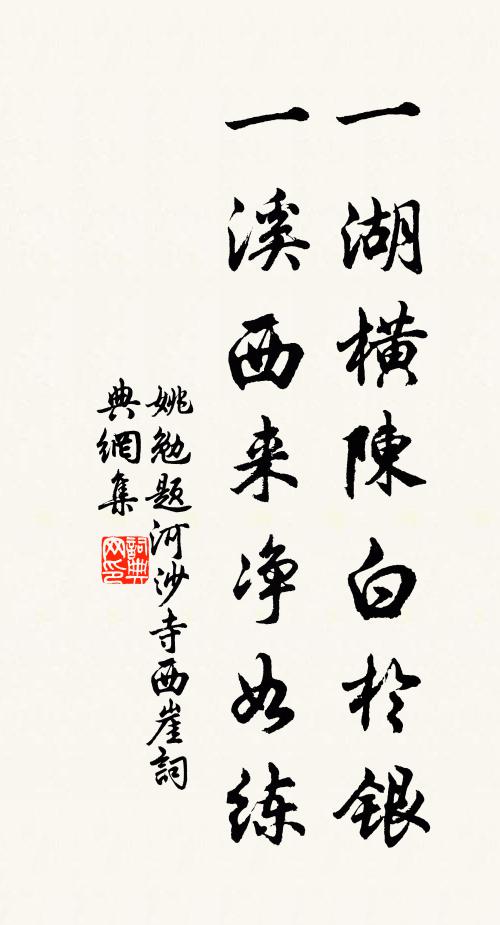 一湖橫陳白於銀
一溪西来净如练
姚勉题河沙寺西崖詞
典網集
詞典网印